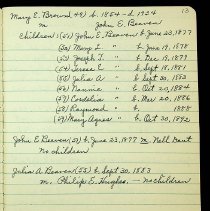 13
Mary E. Brown (49) b. 1854 - d. 1934
m John E. Beaven
Children: (51) John E. Beaven b June 23, 1877
(52) Mary L " b June 19, 1878
(53) Joseph T. " b Dec 19, 1879
(54) Teresa E " b Sept 18, 1881
(55) Julia A " b Sept 30, 1883
(56) Nannie " b Oct 20, 1884
(57) Cordelia " b Mar 20, 1886
(58) Raymond " b 1888
(59) Mary Agnes " b Oct 30, 1892
John E Beaven (51) b June 23, 1877 m Nell Gant
No children
Julia A Beaven (55) b Sept 30, 1883
m. Philip E. Hughes — no children